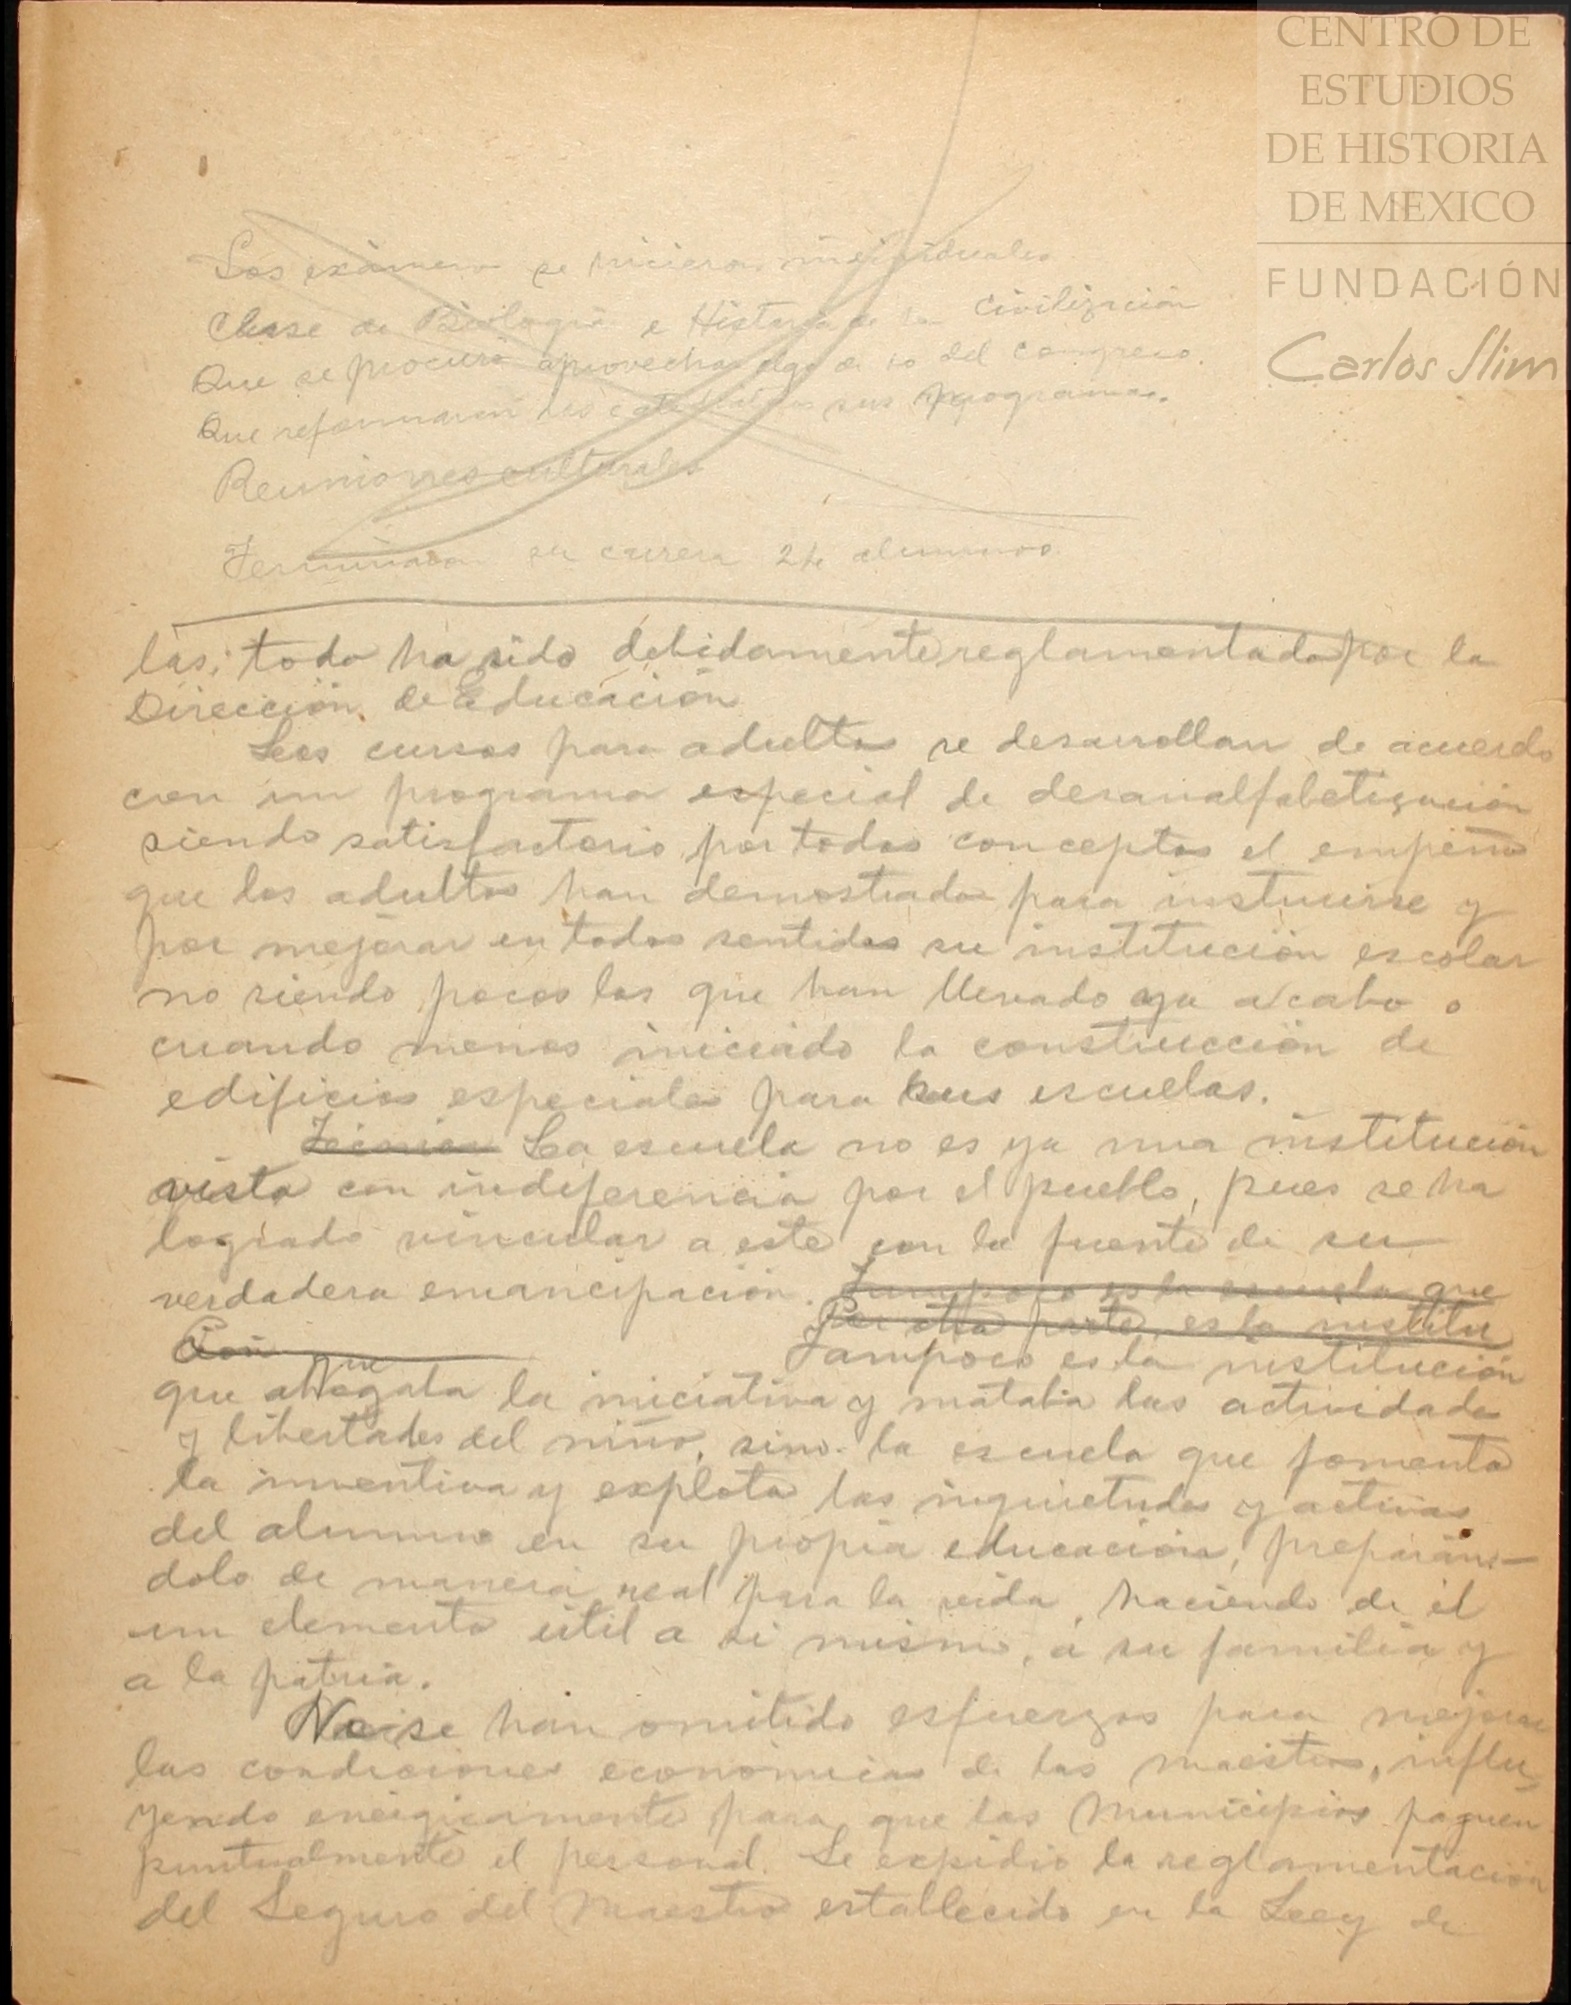 CENTRO DE
ESTUDIOS
DE HISTORIA
DE MEXICO
FUNDACIÓN
Carlos Slim
Los exámenes se hicieron individuales
Clase de Psicología e Historia de la Civilización
Que se procuró aprovechar algo de lo del congreso.
Que reformaron los catedráticos sus programas.
Reuniones culturales
Terminaron su carrera 24 alumnos.
las; todo ha sido debidamente reglamentado por la
Dirección de Educación
Los cursos para adultos se desarrollan de acuerdo
con un programa especial de desanalfabetización
siendo satisfactorio por todos conceptos el empeño
que los adultos han demostrado para instruirse y
por mejorar en todos sentidos su institución escolar
no siendo pocos los que han llevado ya a cabo o
cuando menos iniciado la construcción de
edificios especiales para sus escuelas.
La escuela no es ya una institución
vista con indiferencia por el pueblo, pues se ha
logrado vincular a este con la fuente de su
verdadera emancipación. Tampoco es la escuela que
Por otra parte, es la institu
ción que Tampoco es la institución
que ahogaba la iniciativa y mataba las actividades
y libertades del niño, sino la escuela que fomenta
la inventiva y explota las inquietudes y activas
del alumno en su propia educación, preparán-
dolo de manera real para la vida, haciendo de él
un elemento útil a si mismo, a su familia y
a la patria.
No se han omitido esfuerzos para mejorar
las condiciones económicas de los maestros, influ-
yendo enérgicamente para que los Municipios paguen
puntualmente el personal. Se expidió la reglamentación
del Seguro del Maestro establecido en la Ley de